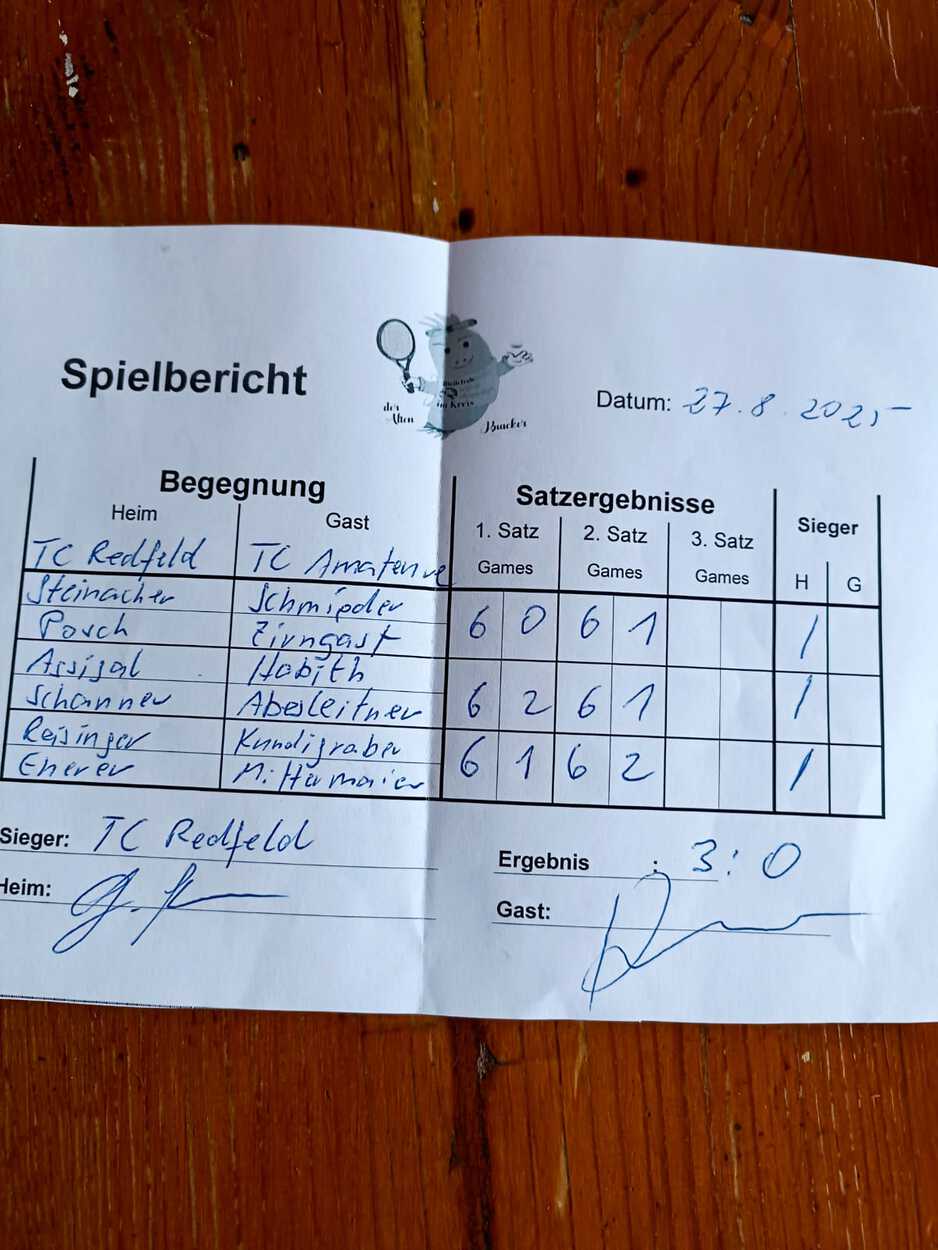 Spielbericht
der
Alten
im Kreis
Brucker
Datum: 27.8.2025
Begegnung
Satzergebnisse
Sieger
Heim Gast
1. Satz 2. Satz 3. Satz
TC Redfeld TC Amateure
Games Games Games H G
Steinacher Schmieder
Posch Zirngast
6 0 6 1 /
Assigal Habith
Schanner Abesleitner
6 2 6 1 /
Reisinger Kundigraber
Ererer Mittermaier
6 1 6 2 /
Sieger: TC Redfeld
Ergebnis : 3:0
Heim:
Gast: